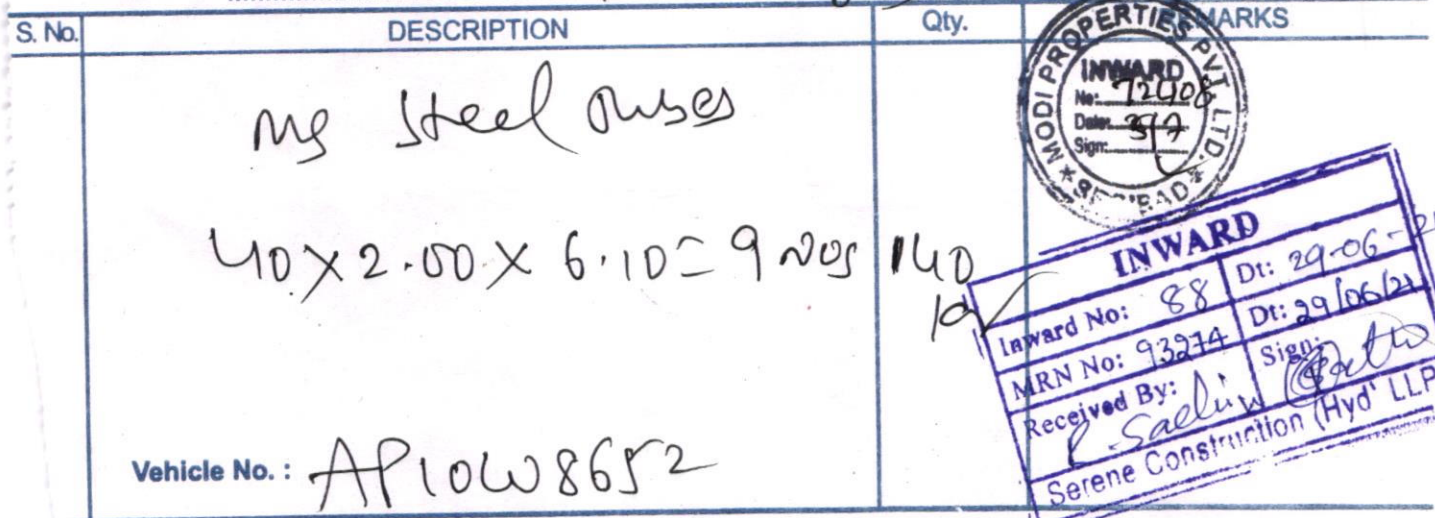 S. No. DESCRIPTION Qty. REMARKS
MS Steel Tubes
40 X 2.00 X 6.10 = 9 nos 140
kg
Vehicle No. : AP10W8652
MODI PROPERTIES PVT. LTD.
INWARD
No: 72408
Date: 3/7
Sign:
★ SEC'BAD ★
INWARD
Inward No: 88 Dt: 29-06-21
MRN No: 93274 Dt: 29/06/21
Received By: Sign:
Serene Construction (Hyd' LLP